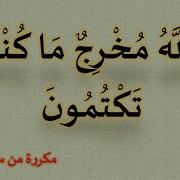 لَّهُ مُخْرِجٌ مَا كُنْ
تَكْتُمُونَ
مكررة من س